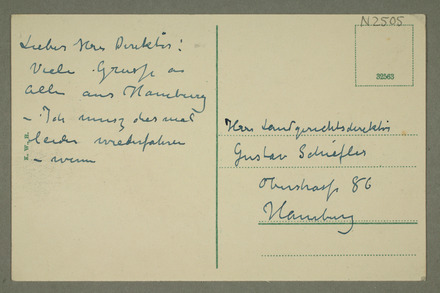 Lieber Herr Direktor!
Viele Grüsse an
alle aus Hamburg
– Ich muss diesmal
leider wiederfahren
– wenn
E.W.B.
N2505
32563
Herrn Landgerichtsdirektor
Gustav Schiefler
Oberstrasse 86
Hamburg